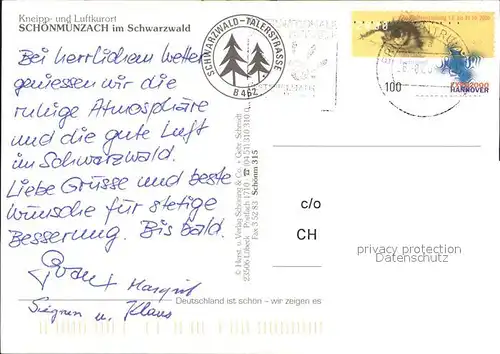 Kneipp- und Luftkurort
SCHÖNMÜNZACH im Schwarzwald
Bei herrlichem Wetter
geniessen wir die
ruhige Atmosphäre
und die gute Luft
im Schwarzwald.
Liebe Grüsse und beste
Wünsche für stetige
Besserung. Bis bald.
Margrit
Siegrun u. Klaus
SCHWARZWALD-TÄLERSTRASSE
B 462
© Herst. u. Verlag Schöning & Co. + Gebr. Schmidt
23506 Lübeck Postfach 1710 ☎ (04 51) 310 310 0
Fax 3 52 83 Schönm 315
Deutschland ist schön – wir zeigen es
100
EXPO2000
HANNOVER
c/o
CH
privacy protection
Datenschutz